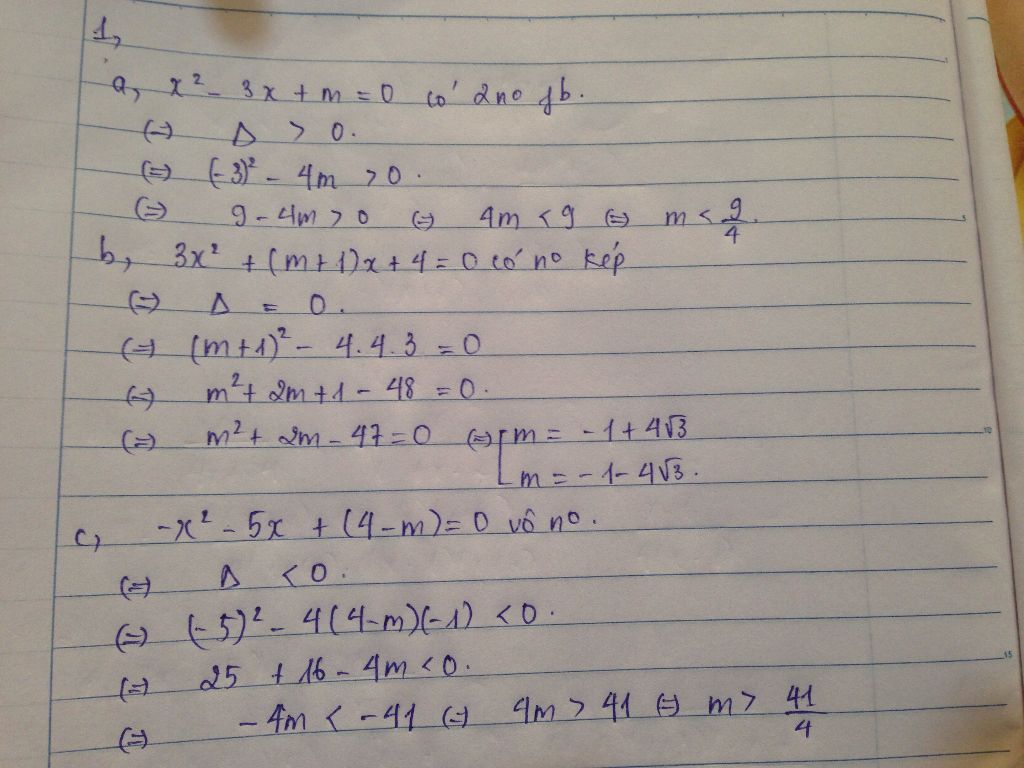 1,
a, x² - 3x + m = 0 có 2 no fb.
(=) Δ > 0.
(=) (-3)² - 4m > 0.
(=) 9 - 4m > 0 (=) 4m < 9 (=) m < 9/4.
b, 3x² + (m+1)x + 4 = 0 có no kép
(=) Δ = 0.
(=) (m+1)² - 4.4.3 = 0
(=) m² + 2m + 1 - 48 = 0.
(=) m² + 2m - 47 = 0 (=) [ m = -1 + 4√3
m = -1 - 4√3.
c, -x² - 5x + (4-m) = 0 vô no.
(=) Δ < 0.
(=) (-5)² - 4(4-m)(-1) < 0.
(=) 25 + 16 - 4m < 0.
(=) -4m < -41 (=) 4m > 41 (=) m > 41/4
5
10
15